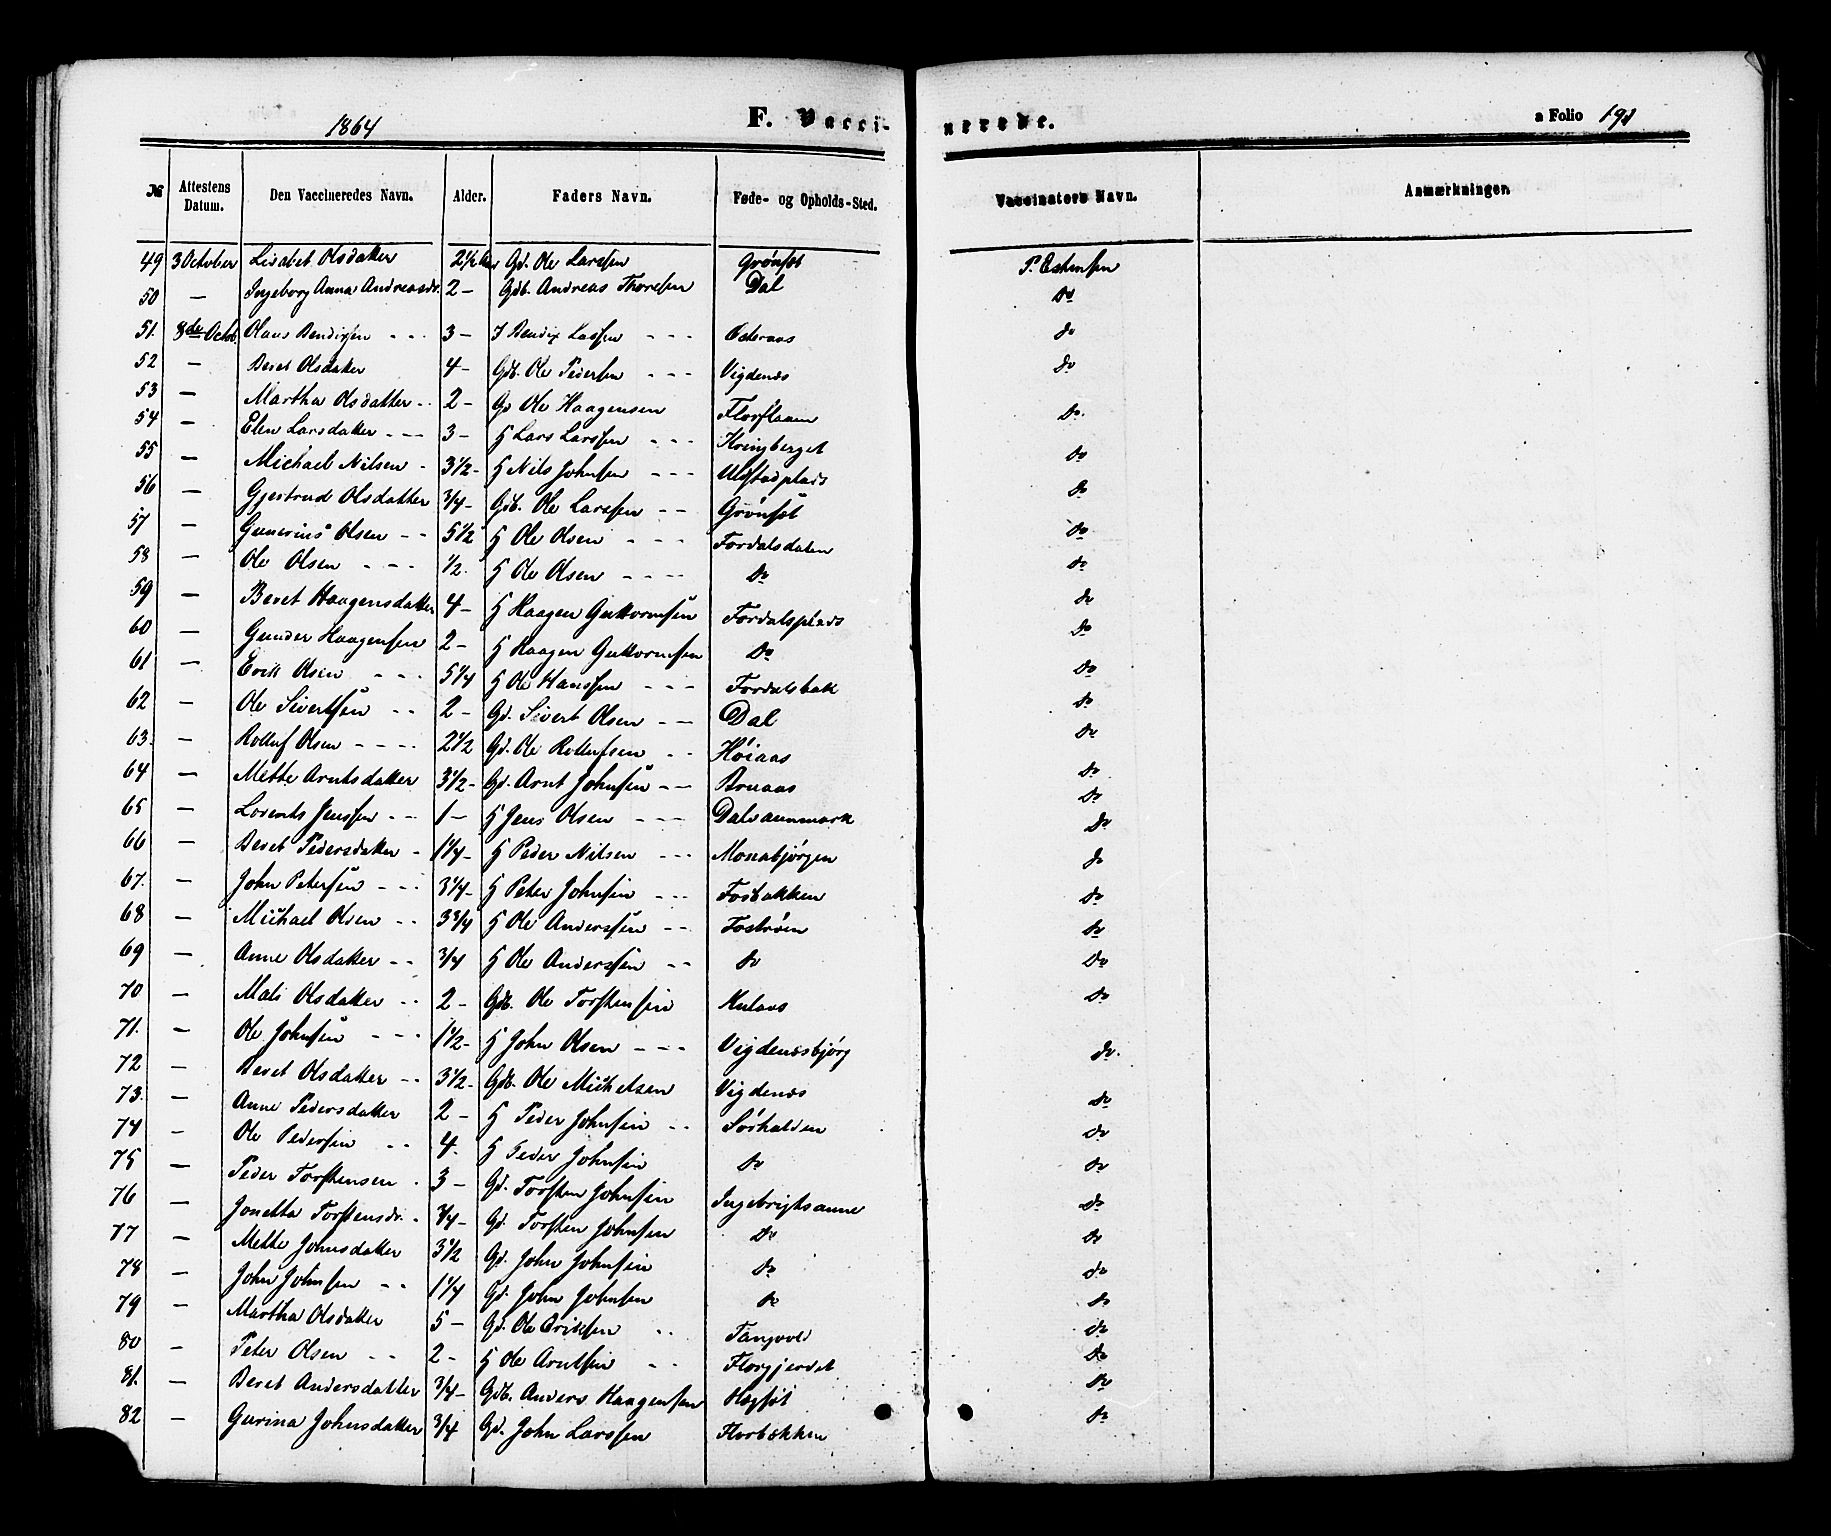 1864 F. Vaccinerede. a Folio 191
№ Attestens Datum. Den Vaccineredes Navn. Alder. Faders Navn. Føde- og Opholds-Sted. Vaccinators Navn. Anmærkninger.
49 3 October Lisabet Olsdatter 2½ Gd. Ole Larssen Grønset P. Estensen
50 — Ingeborg Anna Andreasdr. 2 - Gdb. Andreas Thoresen Dal Do
51. 8de Octob. Olaus Bendixen - - - 3 - I Bendix Lassen - - - Osteraas do
52 — Beret Olsdatter 4 - Gdb. Ole Pedersen - - - Vigdenes do
53 — Martha Olsdatter - - 2 - Gd Ole Haagensen Florflaaen Do.
54 — Elen Larsdatter - - - 3 - H Lars Larssen - - - Kringberget do
55 — Michael Nilsen - 3½ - H Nils Johnsen - - - Ulstadplads do
56 — Gjertrud Olsdatter ¾ - Gdb. Ole Larssen - - Grønset do
57 — Gunerius Olsen - - 5½ H Ole Olsen - - - Fordalsdalen do
58 — Ole Olsen - - - ½. H Ole Olsen - - - - Do do
59 — Beret Haagensdatter 4 - H Haagen Guttormsen Fordalsplads Do
60 — Gunder Haagensen 2 - H Haagen Guttormsen Do do
61 — Erik Olsen - - - 5¼ H Ole Hanssen - - - Fordalsbak do
62 — Ole Sivertsen - - 2 - Gd. Sivert Olsen - - Dal do
63. — Rolluf Olsen - - - - 2½ Gd. Ole Rollufsen - - Høiaas do
64 — Mette Arntsdatter 3½ - Gd. Arnt Johnsen - - Bruaas do
65 — Lorents Jenssen - - 1 - H Jens Olsen - - - Dalvaummark Do
66 — Beret Pedersdatter - 1¼ - H Peder Nilsen - - - Monsbjørgen do
67. — John Petersen - - - 3¼ - H Peter Johnsen - - - Fosbakken do
68 — Michael Olsen - - 3¾ H Ole Anderssen - - Fosbrøen do
69 — Anne Olsdatter - - ¾ H Ole Anderssen - - do Do
70 — Mali Olsdatter - - 2 - Gdb. Ole Torstensen Kulaas do
71. — Ole Johnsen - - - 1½ - H John Olsen - - - Vigdenesbjørg do.
72 — Beret Olsdatter - - 3½ - Gdb. Ole Michelsen Vigdenes do
73. — Anne Pedersdatter 2 - H Peder Johnsen - - Sørhalden do
74 — Ole Pedersen - - 4. H Peder Johnsen do do
75 — Peder Torstensen - 3 - Gd. Torsten Johnsen Ingebrigtsanne do
76 — Jonetta Torstensdr. - ¾ - Gd. Torsten Johnsen Do do
77 — Mette Johnsdatter 3½ Gd. John Johnsen Do do
78 — John Johnsen - - 1¼ Gd. John Johnsen do do
79 — Martha Olsdatter 5 - Gd. Ole Eriksen - - Tangvold do
80 — Peter Olsen - - 2 - H Ole Arntsen - - Florgjerdet do
81. — Beret Andersdatter ¾ - Gdb. Anders Haagensen Hegset do
82 — Gurina Johnsdatter ¾ Gd. John Larssen Florbækken do